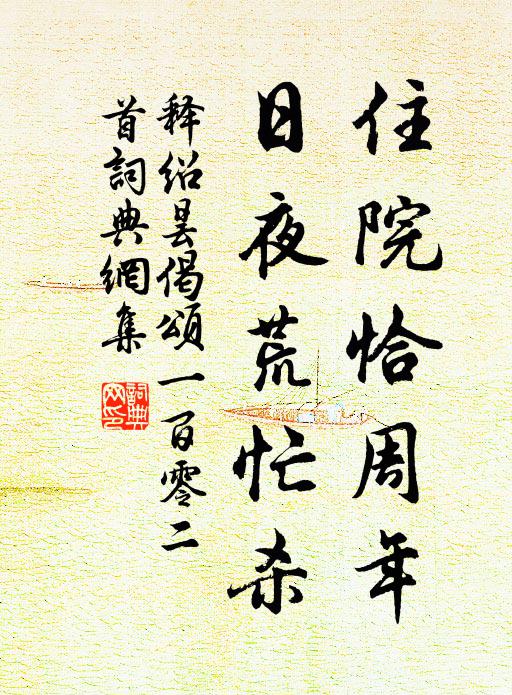 住院恰周年
日夜荒忙杀
释绍昙偈颂一百零二
首詞典網集
詞典网印